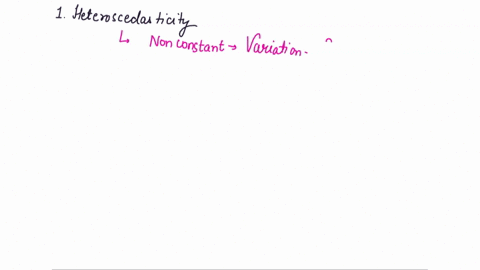 1. Heteroscedasticity
↳ Non constant → Variation.